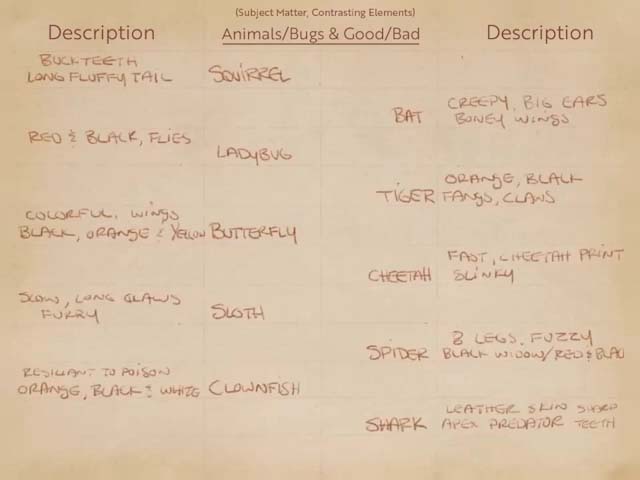 (Subject Matter, Contrasting Elements)
Description Animals/Bugs & Good/Bad Description
BUCKTEETH
LONG FLUFFY TAIL SQUIRREL
CREEPY, BIG EARS
BAT BONEY WINGS
RED & BLACK, FLIES
LADYBUG
ORANGE, BLACK
TIGER FANGS, CLAWS
COLORFUL, WINGS
BLACK, ORANGE & YELLOW BUTTERFLY
FAST, CHEETAH PRINT
CHEETAH SLINKY
SLOW, LONG CLAWS
FURRY SLOTH
8 LEGS, FUZZY
SPIDER BLACK WIDOW/RED & BLAC
RESILIANT TO POISON
ORANGE, BLACK & WHITE CLOWNFISH
LEATHER SKIN SHARP
SHARK APEX PREDATOR TEETH